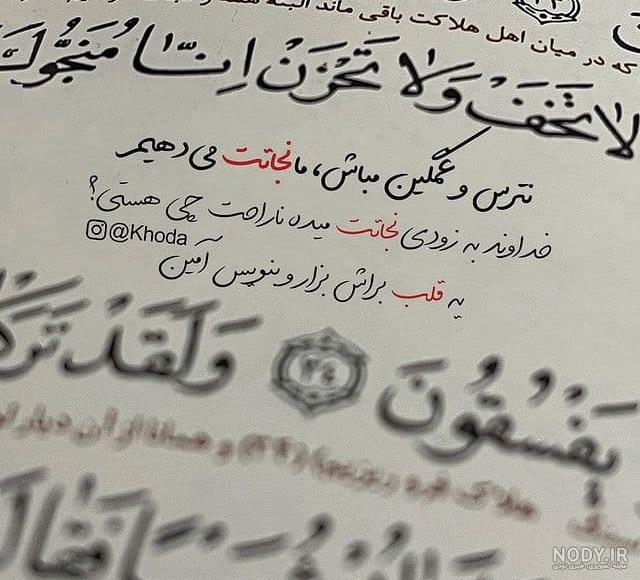 که در میان اهل هلاکت باقی ماند البته همه
لَا تَخَفْ وَلَا تَحْزَنْ إِنَّا مُنَجُّوكَ
نترس و غمگین مباش، ما نجاتت می‌دهیم
خداوند به زودی نجاتت میده ناراحت چی هستی؟
@Khoda
یه قلب براش بزار و بنویس آمین
يَفْسُقُونَ ٣٤ وَلَقَدْ تَرَكْ
هلاک فرو ریزیم (٣٤) و همانا از آن دیار
NODY.IR